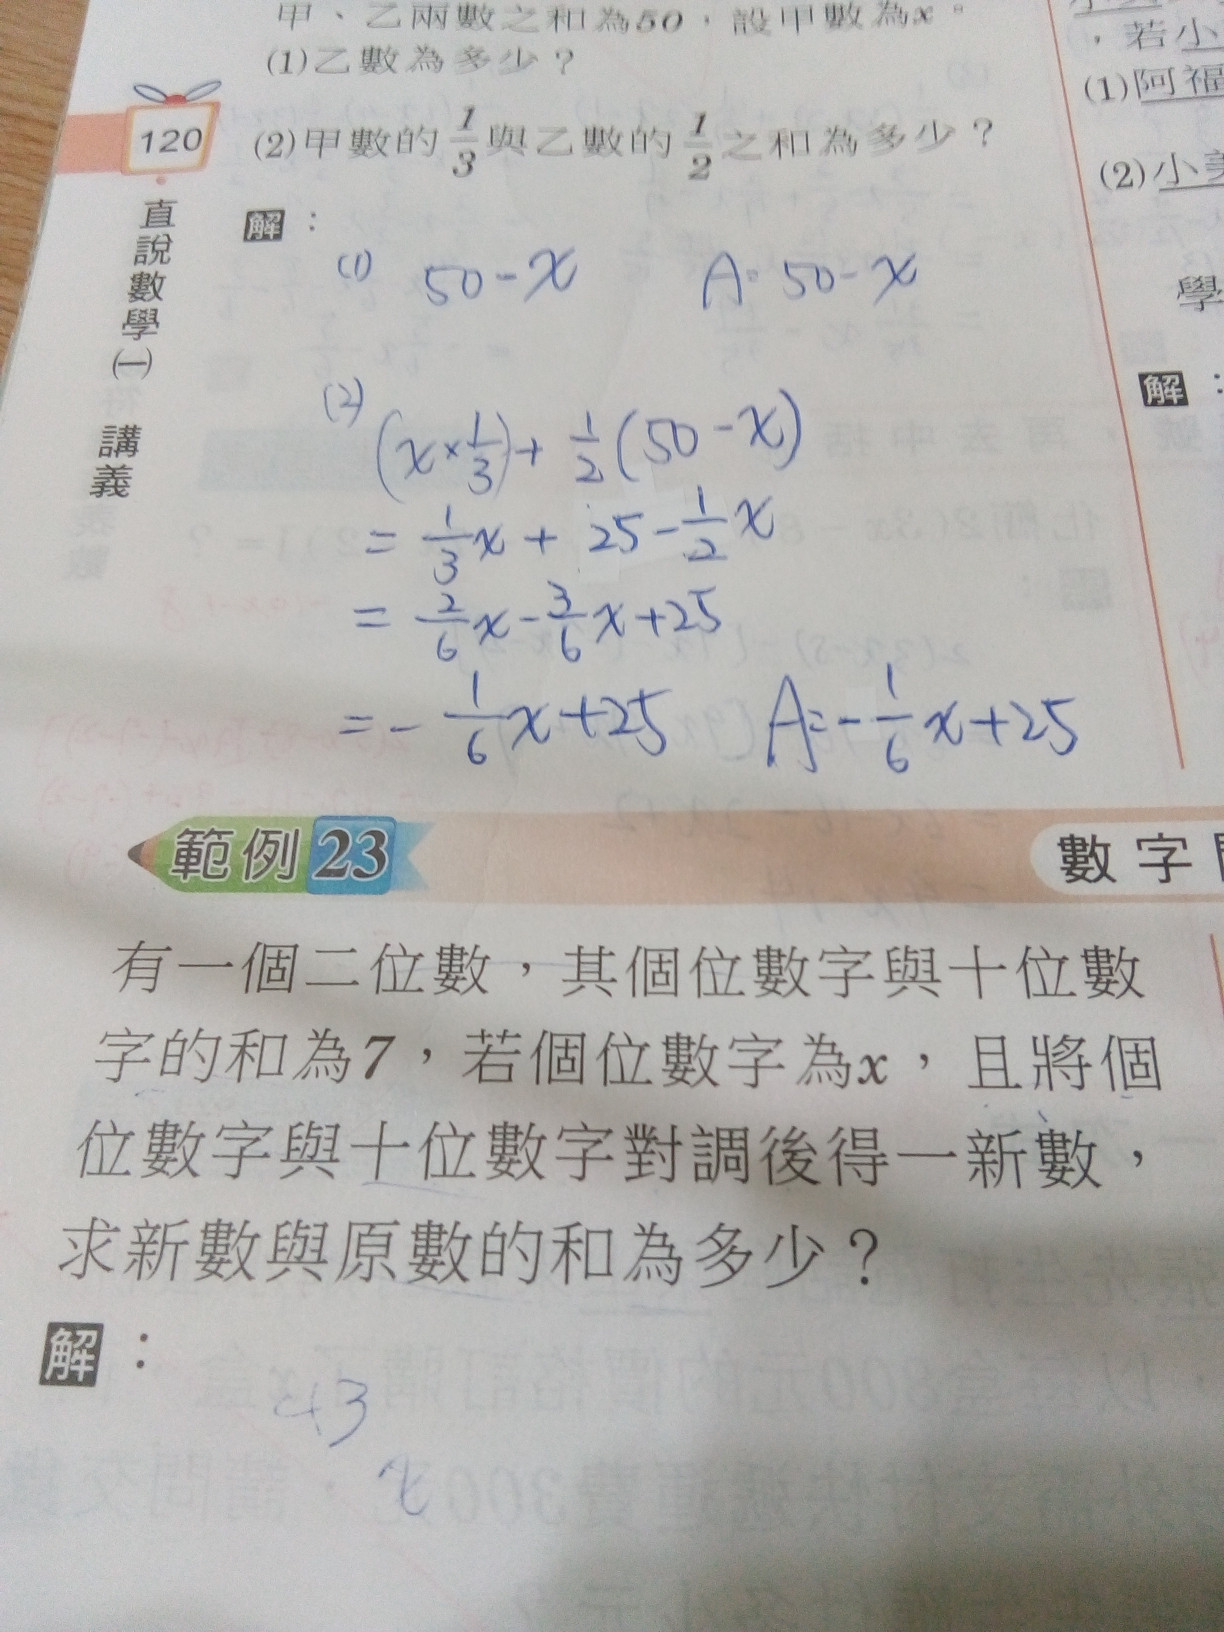 甲、乙兩數之和為50，設甲數為x。
(1)乙數為多少？
(2)甲數的1/3與乙數的1/2之和為多少？
解：
(1) 50-x A:50-x
(2) (x×1/3)+1/2(50-x)
=1/3x+25-1/2x
=2/6x-3/6x+25
=-1/6x+25 A:-1/6x+25
120
直說數學(一) 講義
範例 23
數字
有一個二位數，其個位數字與十位數
字的和為7，若個位數字為x，且將個
位數字與十位數字對調後得一新數，
求新數與原數的和為多少？
解：
43
x
，若小
(1)阿福
(2)小美
學
解：